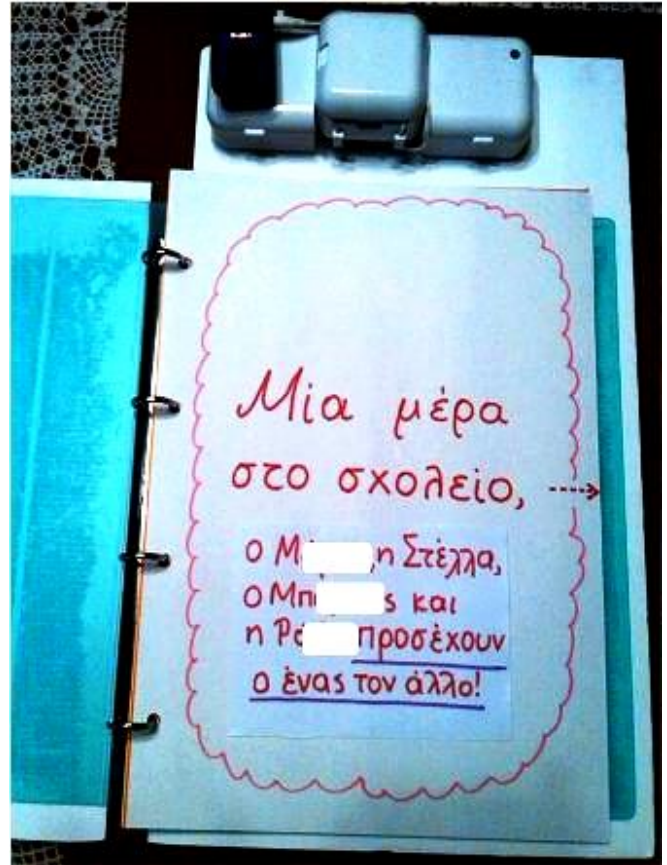 Μία μέρα
στο σχολείο,
ο Μ η Στέλλα,
ο Μπ ς και
η Ρ προσέχουν
ο ένας τον άλλο!